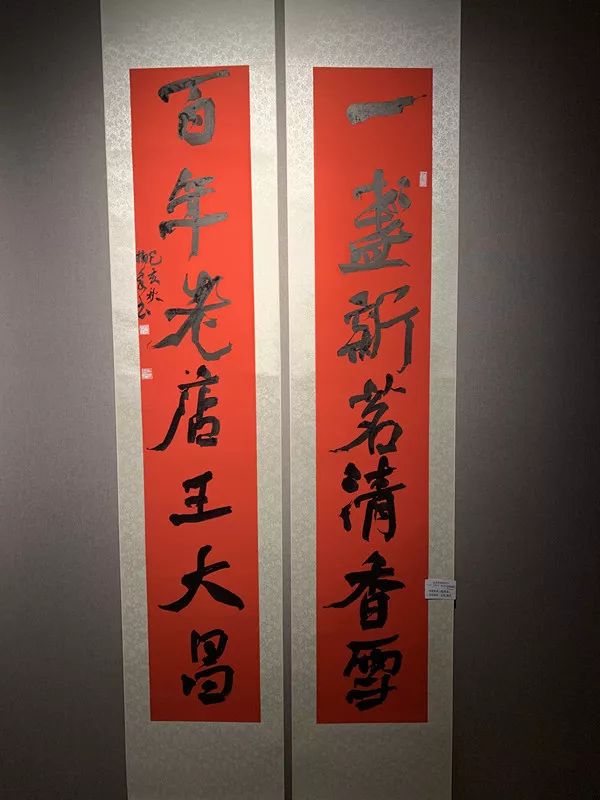 一盏新茗清香雪
百年老店王大昌
己亥秋